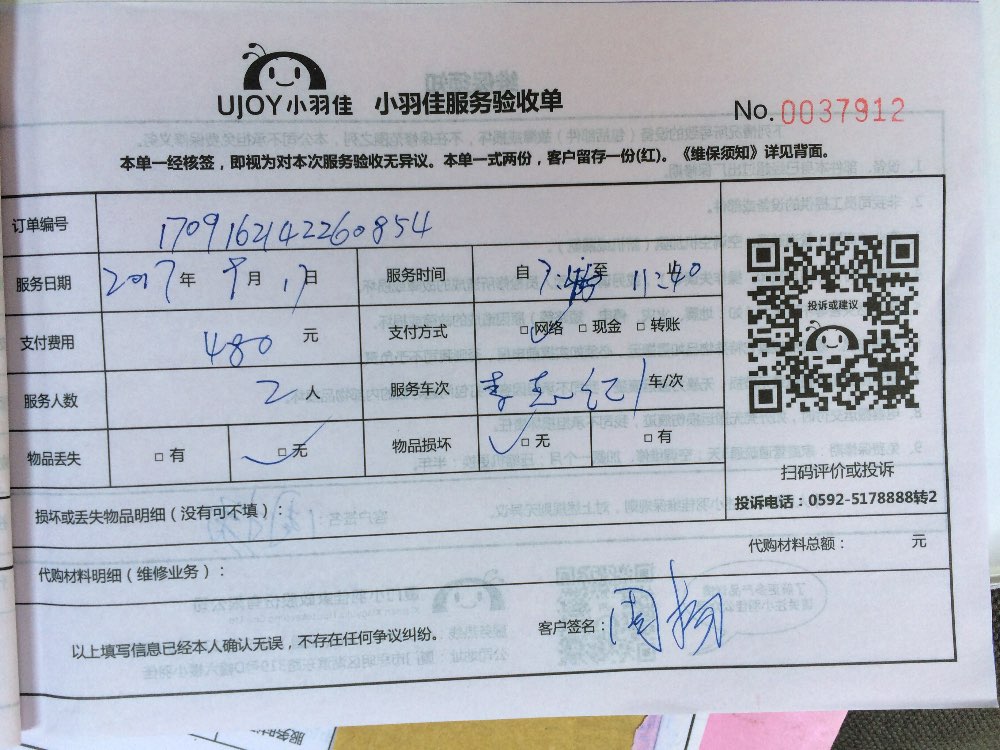 UJOY小羽佳 小羽佳服务验收单
No. 0037912
本单一经核签，即视为对本次服务验收无异议。本单一式两份，客户留存一份(红)。《维保须知》详见背面。
订单编号 1709162142260854
服务日期 2017年 9月 17日 服务时间 自 至 11:40
投诉或建议
支付费用 480 元 支付方式 □网络 □现金 □转账
服务人数 2人 服务车次 车/次
物品丢失 □有 □无 物品损坏 □无 □有
扫码评价或投诉
投诉电话：0592-5178888转2
损坏或丢失物品明细（没有可不填）：
代购材料总额： 元
代购材料明细（维修业务）：
以上填写信息已经本人确认无误，不存在任何争议纠纷。 客户签名：